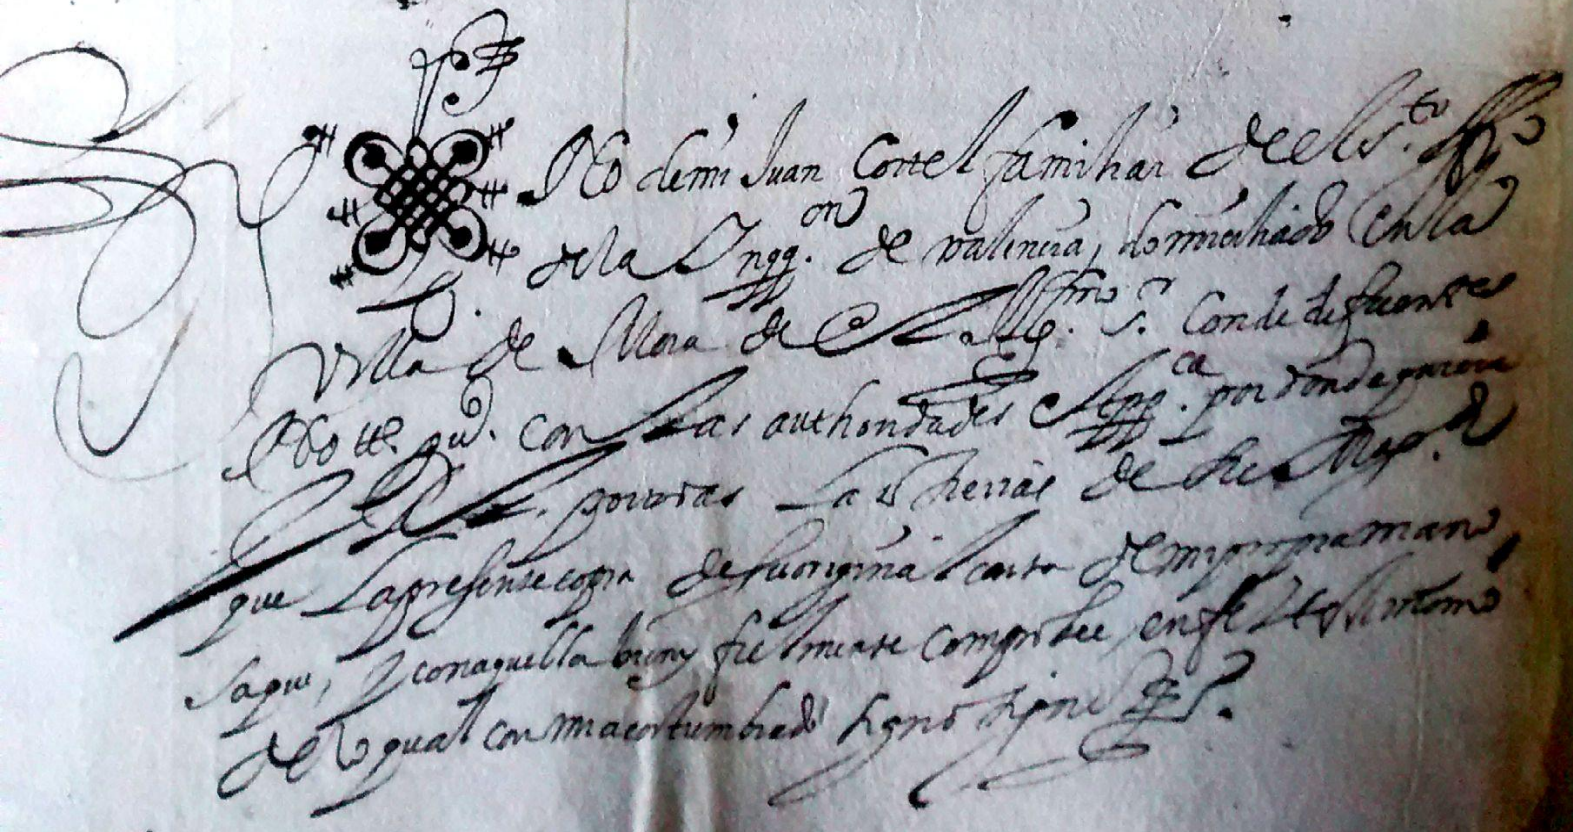 Sig+no de mi Juan Cortel familiar de el S.to Off.o
de la Inqq.on de Valencia, domiciliado en la
Villa de Mora de el Ill.mo S.r Conde de fuentes
Not.o pu.co con las authoridades App.ca por donde quiere
y R.l por todas las tierras de su Mag.d
que la presente copia de su original carta de mi propia mano
saque, y con aquella bien y fielmente comprobe, en fe y testimonio
de lo qual con mi acostumbrado signo signe